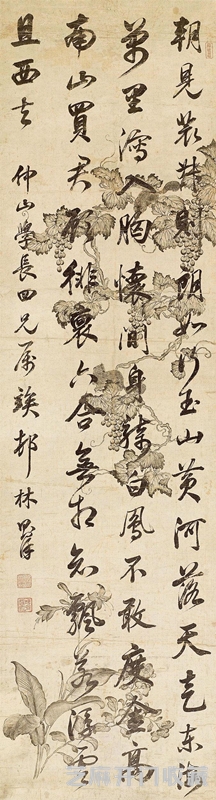 朝見裴叔則朗如行玉山黄河落天走東海
萬里瀉入胸懷間身騎白鳳不敢度金高
南山買君顧徘徊六合無相知飄若浮雲
且西去 仲山學長四兄屬 竢邨林則徐